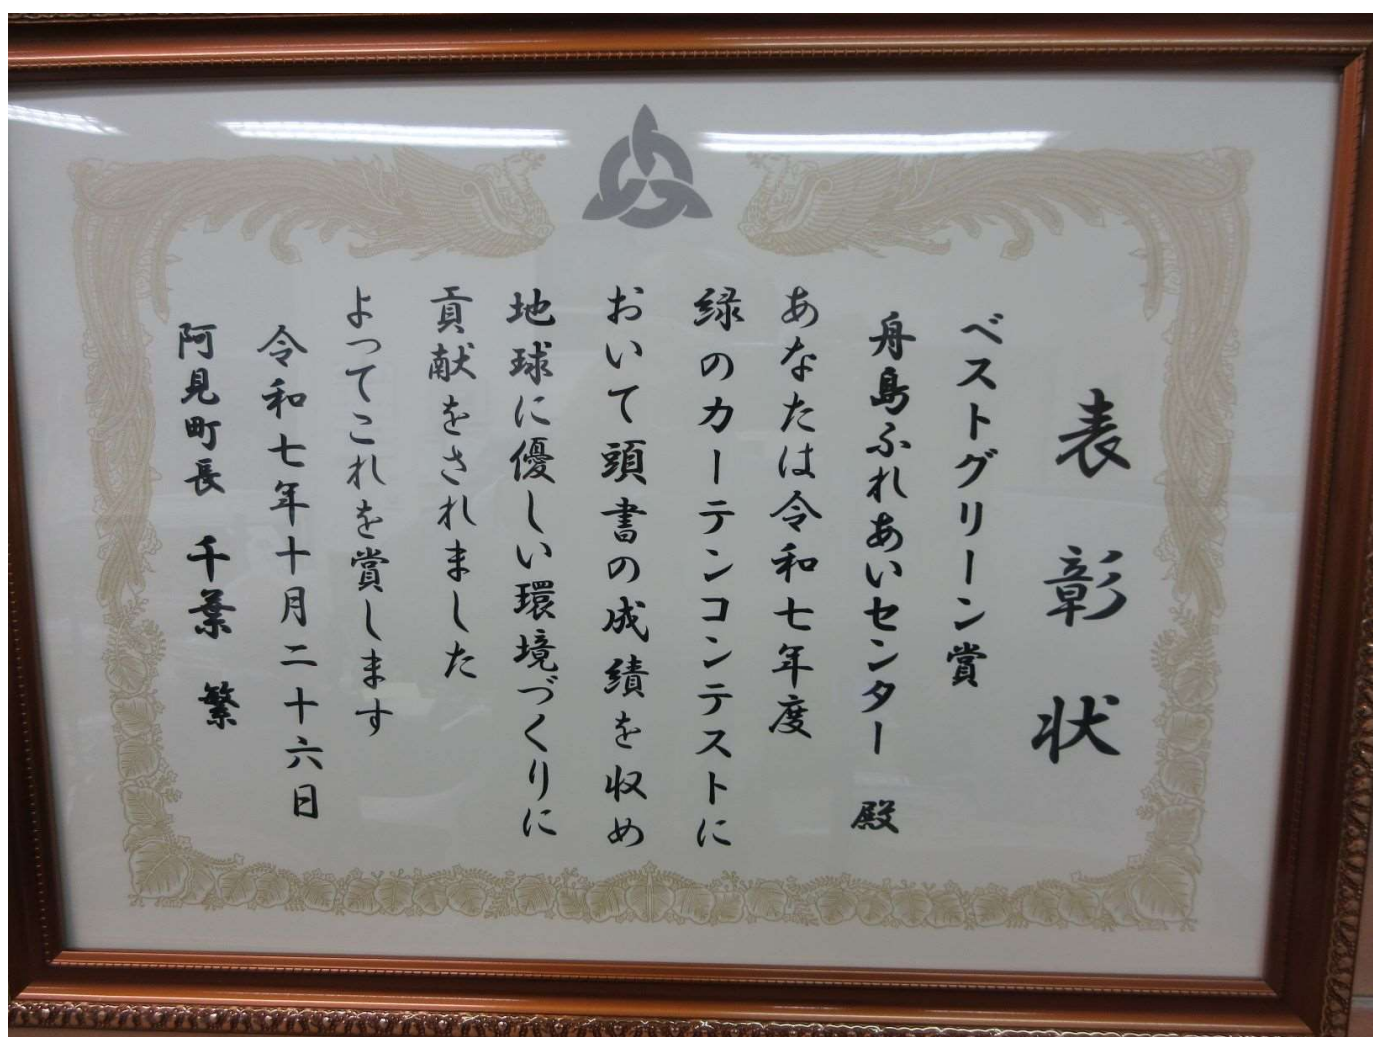 表彰状
ベストグリーン賞
舟島ふれあいセンター 殿
あなたは令和七年度
緑のカーテンコンテストに
おいて頭書の成績を収め
地球に優しい環境づくりに
貢献をされました
よってこれを賞します
令和七年十月二十六日
阿見町長 千葉 繁